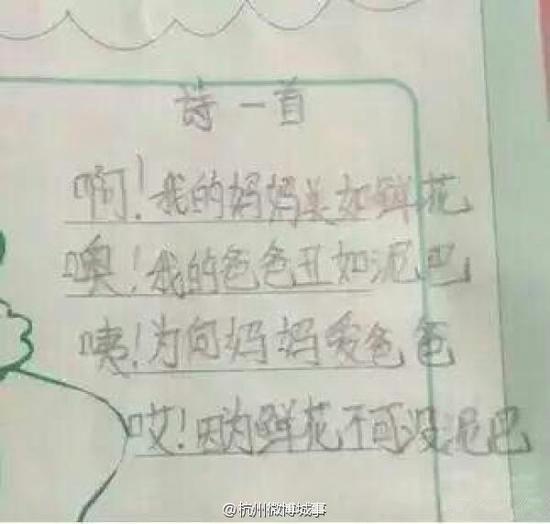 诗一首
啊!我的妈妈美如鲜花
噢!我的爸爸丑如泥巴
咦!为何妈妈爱爸爸
哎!因为鲜花不可没泥巴
@杭州微博城事